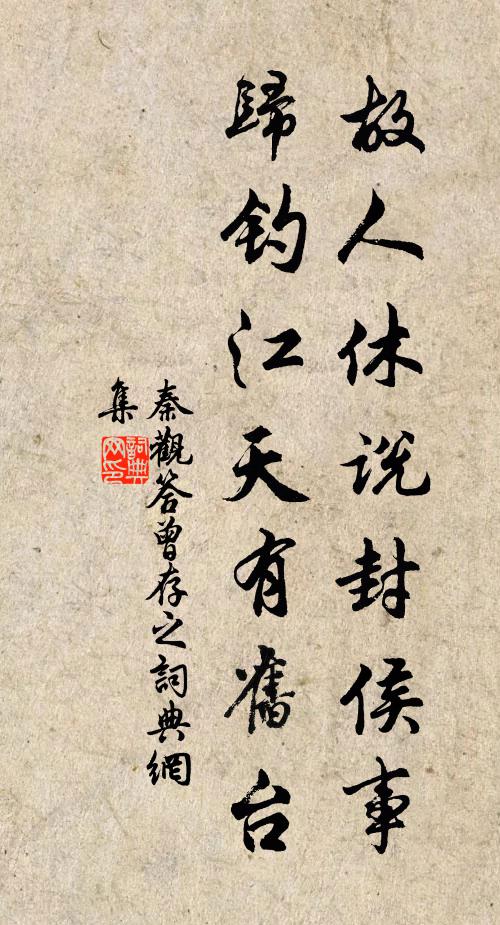 故人休说封侯事
歸钓江天有舊台
秦觀答曾存之詞典網
集
詞典網印